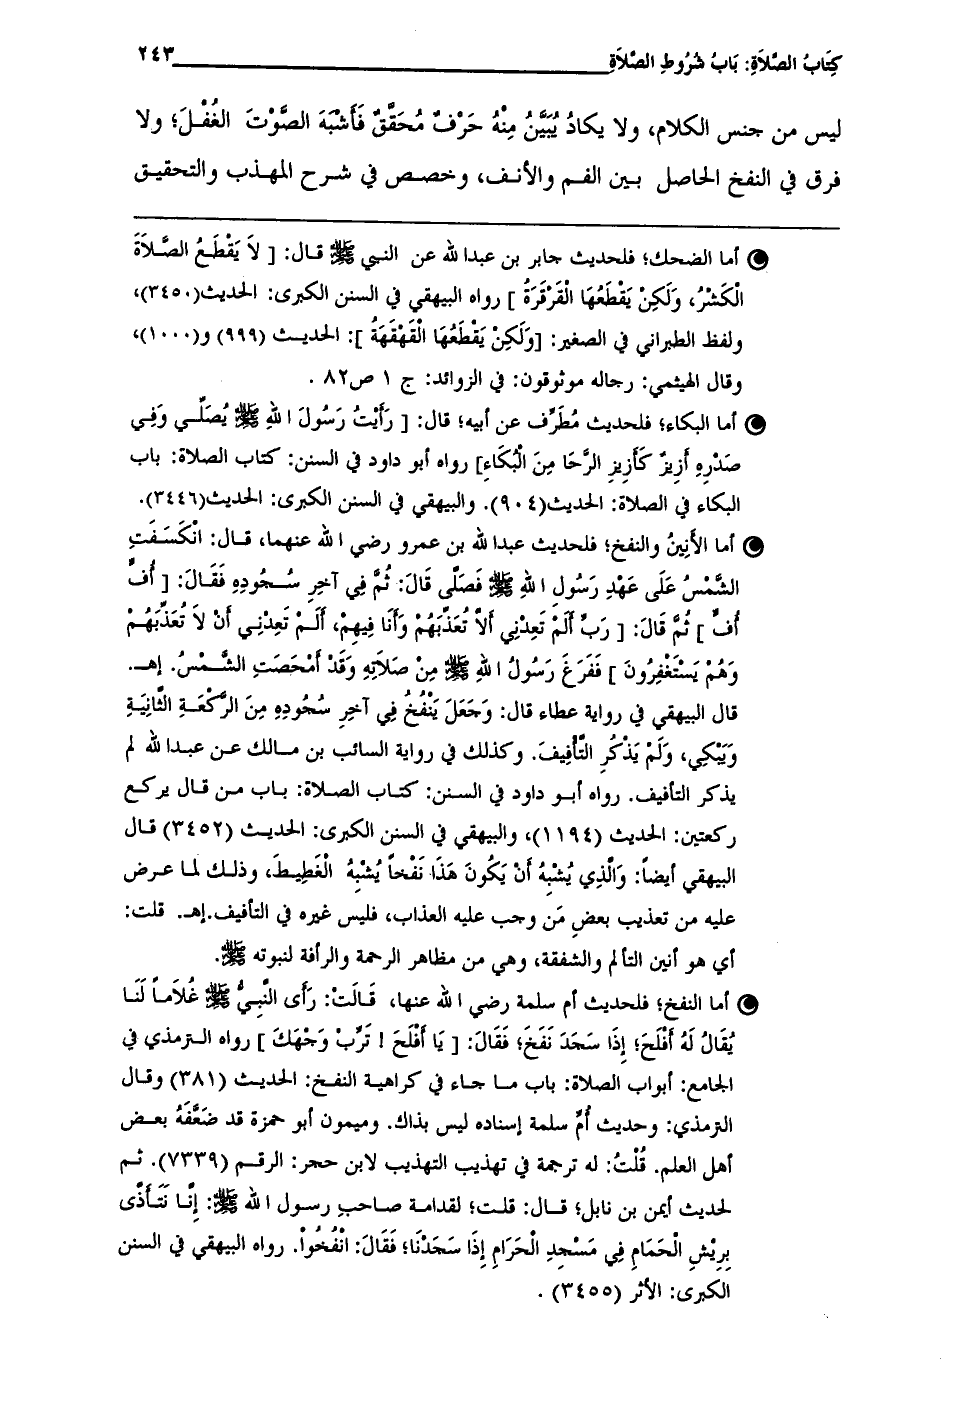 كِتَابُ الصَّلاَةِ: بَابُ شُرُوطِ الصَّلاَةِ ٢٤٣
ليس من جنس الكلام، ولا يكادُ يُبَيَّنُ مِنْهُ حَرْفٌ مُحَقَّقٌ فَأَشْبَهَ الصَّوْتَ الغُفْلَ؛ ولا
فرق في النفخ الحاصل بين الفم والأنف، وخصص في شرح المهذب والتحقيق
أما الضحك؛ فلحديث جابر بن عبدا لله عن النبي ﷺ قال: [ لاَ يَقْطَعُ الصَّلاَةَ
الْكَشْرُ، وَلَكِنْ يَقْطَعُهَا الْقَرْقَرَةُ ] رواه البيهقي في السنن الكبرى: الحديث(٣٤٥٠)،
ولفظ الطبراني في الصغير: [وَلَكِنْ يَقْطَعُهَا الْقَهْقَهَةُ ]: الحديث (٩٩٩) و(١٠٠٠)،
وقال الهيثمي: رجاله موثوقون: في الزوائد: ج ١ ص٨٢ .
أما البكاء؛ فلحديث مُطَرِّف عن أبيه؛ قال: [ رَأَيْتُ رَسُولَ ا للهِ ﷺ يُصَلِّي وَفِي
صَدْرِهِ أَزِيزٌ كَأَزِيزِ الرَّحَا مِنَ الْبُكَاءِ] رواه أبو داود في السنن: كتاب الصلاة: باب
البكاء في الصلاة: الحديث(٩٠٤). والبيهقي في السنن الكبرى: الحديث(٣٤٤٦).
أما الأَنِينُ والنفخ؛ فلحديث عبدا لله بن عمرو رضي ا لله عنهما، قال: انْكَسَفَتِ
الشَّمْسُ عَلَى عَهْدِ رَسُولِ ا للهِ ﷺ فَصَلَّى قَالَ: ثُمَّ فِي آخِرِ سُجُودِهِ فَقَالَ: [ أُفٍّ
أُفٍّ ] ثُمَّ قَالَ: [ رَبِّ أَلَمْ تَعِدْنِي أَلاَّ تُعَذِّبَهُمْ وَأَنَا فِيهِمْ، أَلَمْ تَعِدْنِي أَنْ لاَ تُعَذِّبَهُمْ
وَهُمْ يَسْتَغْفِرُونَ ] فَفَرَغَ رَسُولُ ا للهِ ﷺ مِنْ صَلاَتِهِ وَقَدْ أَمْحَصَتِ الشَّمْسُ. إهـ.
قال البيهقي في رواية عطاء قال: وَجَعَلَ يَنْفُخُ فِي آخِرِ سُجُودِهِ مِنَ الرَّكْعَةِ الثَّانِيَةِ
وَيَبْكِي، وَلَمْ يَذْكُرِ التَّأْفِيفَ. وكذلك في رواية السائب بن مالك عن عبدا لله لم
يذكر التأفيف. رواه أبو داود في السنن: كتاب الصلاة: باب من قال يركع
ركعتين: الحديث (١١٩٤)، والبيهقي في السنن الكبرى: الحديث (٣٤٥٢) قال
البيهقي أيضاً: وَالَّذِي يُشْبِهُ أَنْ يَكُونَ هَذَا نَفْخاً يُشْبِهُ الْغَطِيطَ، وذلك لما عرض
عليه من تعذيب بعضِ مَن وجب عليه العذاب، فليس غيره في التأفيف.إهـ. قلت:
أي هو أنين التألم والشفقة، وهي من مظاهر الرحمة والرأفة لنبوته ﷺ.
أما النفخ؛ فلحديث أم سلمة رضي ا لله عنها، قَالَتْ: رَأَى النَّبِيُّ ﷺ غُلاَماً لَنَا
يُقَالُ لَهُ أَفْلَحَ؛ إِذَا سَجَدَ نَفَخَ؛ فَقَالَ: [ يَا أَفْلَحَ ! تَرِّبْ وَجْهَكَ ] رواه الترمذي في
الجامع: أبواب الصلاة: باب ما جاء في كراهية النفخ: الحديث (٣٨١) وقال
الترمذي: وحديث أُمِّ سلمة إسناده ليس بذاك. وميمون أبو حمزة قد ضَعَّفَهُ بعض
أهل العلم. قُلْتُ: له ترجمة في تهذيب التهذيب لابن حجر: الرقم (٧٣٣٩). ثم
لحديث أيمن بن نابل؛ قال: قلت؛ لقدامة صاحبِ رسول ا لله ﷺ: إِنَّا نَتَأَذَّى
بِرِيْشِ الْحَمَامِ فِي مَسْجِدِ الْحَرَامِ إِذَا سَجَدْنَا؛ فَقَالَ: انْفُخُواْ. رواه البيهقي في السنن
الكبرى: الأثر (٣٤٥٥) .